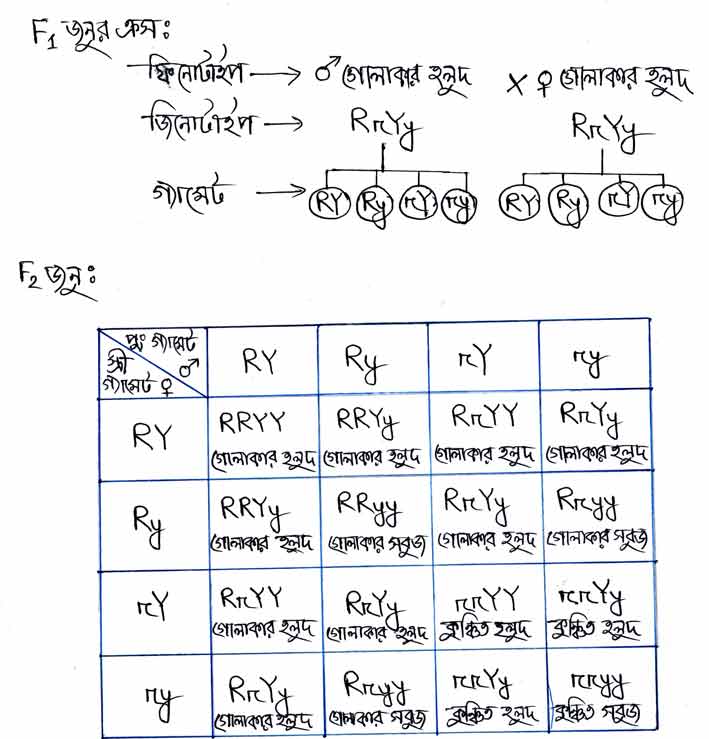 F₁ জনুর ক্রস ঃ
ফিনোটাইপ → ♂ গোলাকার হলুদ × ♀ গোলাকার হলুদ
জিনোটাইপ → RrYy RrYy
গ্যামেট → RY Ry rY ry RY Ry rY ry
F₂ জনু ঃ
পুং গ্যামেট ♂
স্ত্রী গ্যামেট ♀
RY Ry rY ry
RY RRYY RRYy RrYY RrYy
গোলাকার হলুদ গোলাকার হলুদ গোলাকার হলুদ গোলাকার হলুদ
Ry RRYy RRyy RrYy Rryy
গোলাকার হলুদ গোলাকার সবুজ গোলাকার হলুদ গোলাকার সবুজ
rY RrYY RrYy rrYY rrYy
গোলাকার হলুদ গোলাকার হলুদ কুঞ্চিত হলুদ কুঞ্চিত হলুদ
ry RrYy Rryy rrYy rryy
গোলাকার হলুদ গোলাকার সবুজ কুঞ্চিত হলুদ কুঞ্চিত সবুজ